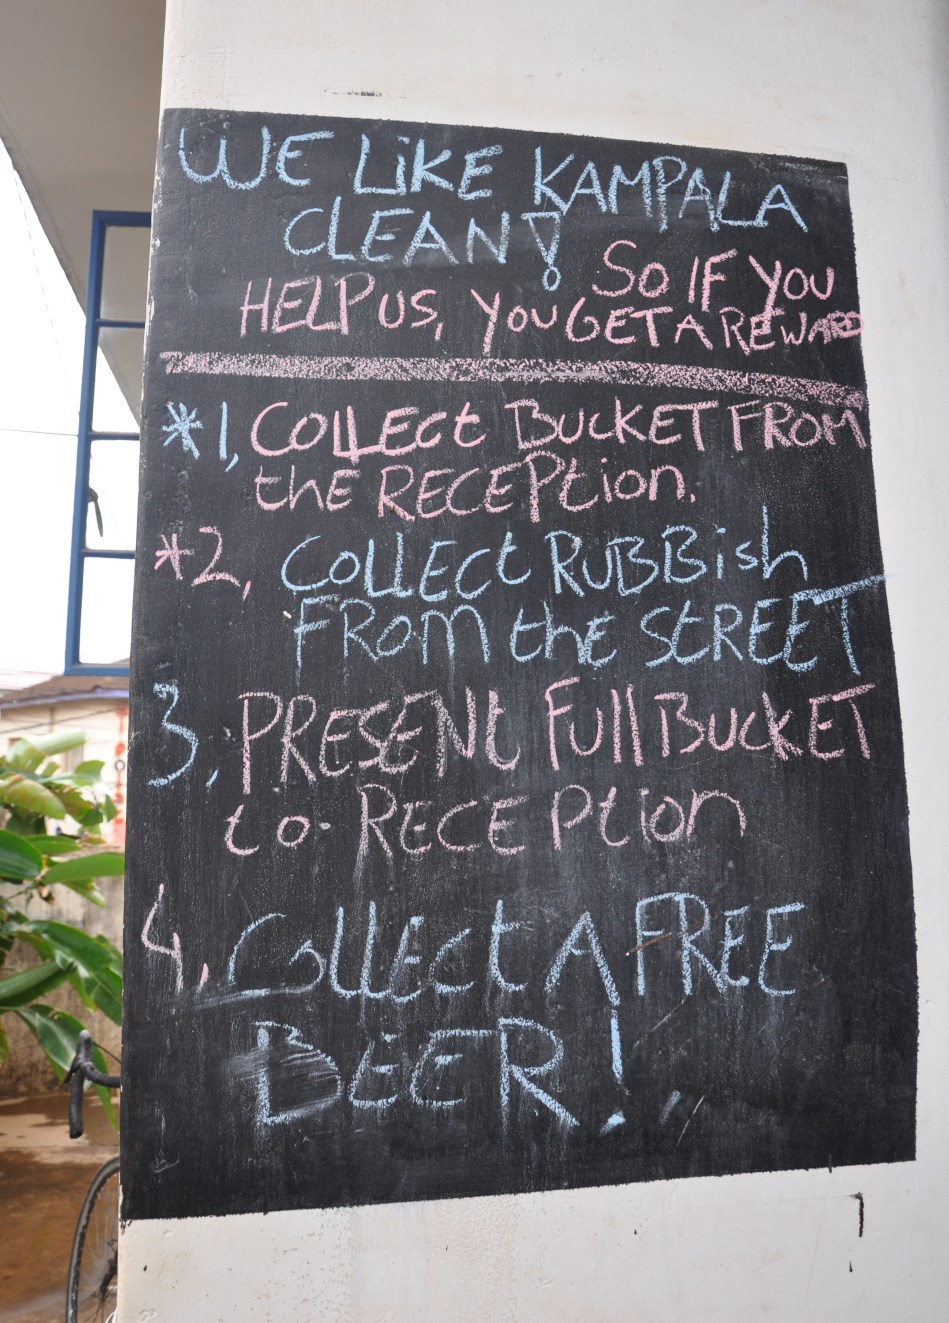 WE LiKE KAMPALA
CLEAN!
SO IF YOU
HELP US, YOU GET A REWARD
*1, COLLECt BUCKET FROM
thE RECEPtion.
*2, COLLECt RUBBish
FROM thE StREET
3, PRESENt Full BUCKET
to RECEPtion
4, COLLECt A FREE
BEER!